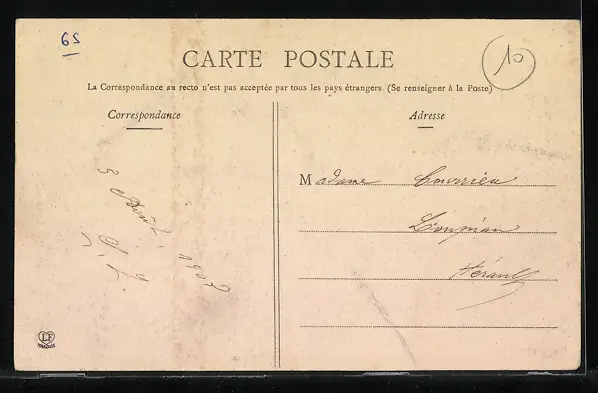 65
10
CARTE POSTALE
La Correspondance au recto n'est pas acceptée par tous les pays étrangers. (Se renseigner à la Poste)
Correspondance
Adresse
Madame Courrieu
Loupian
Hérault
3 Août 1907
LF